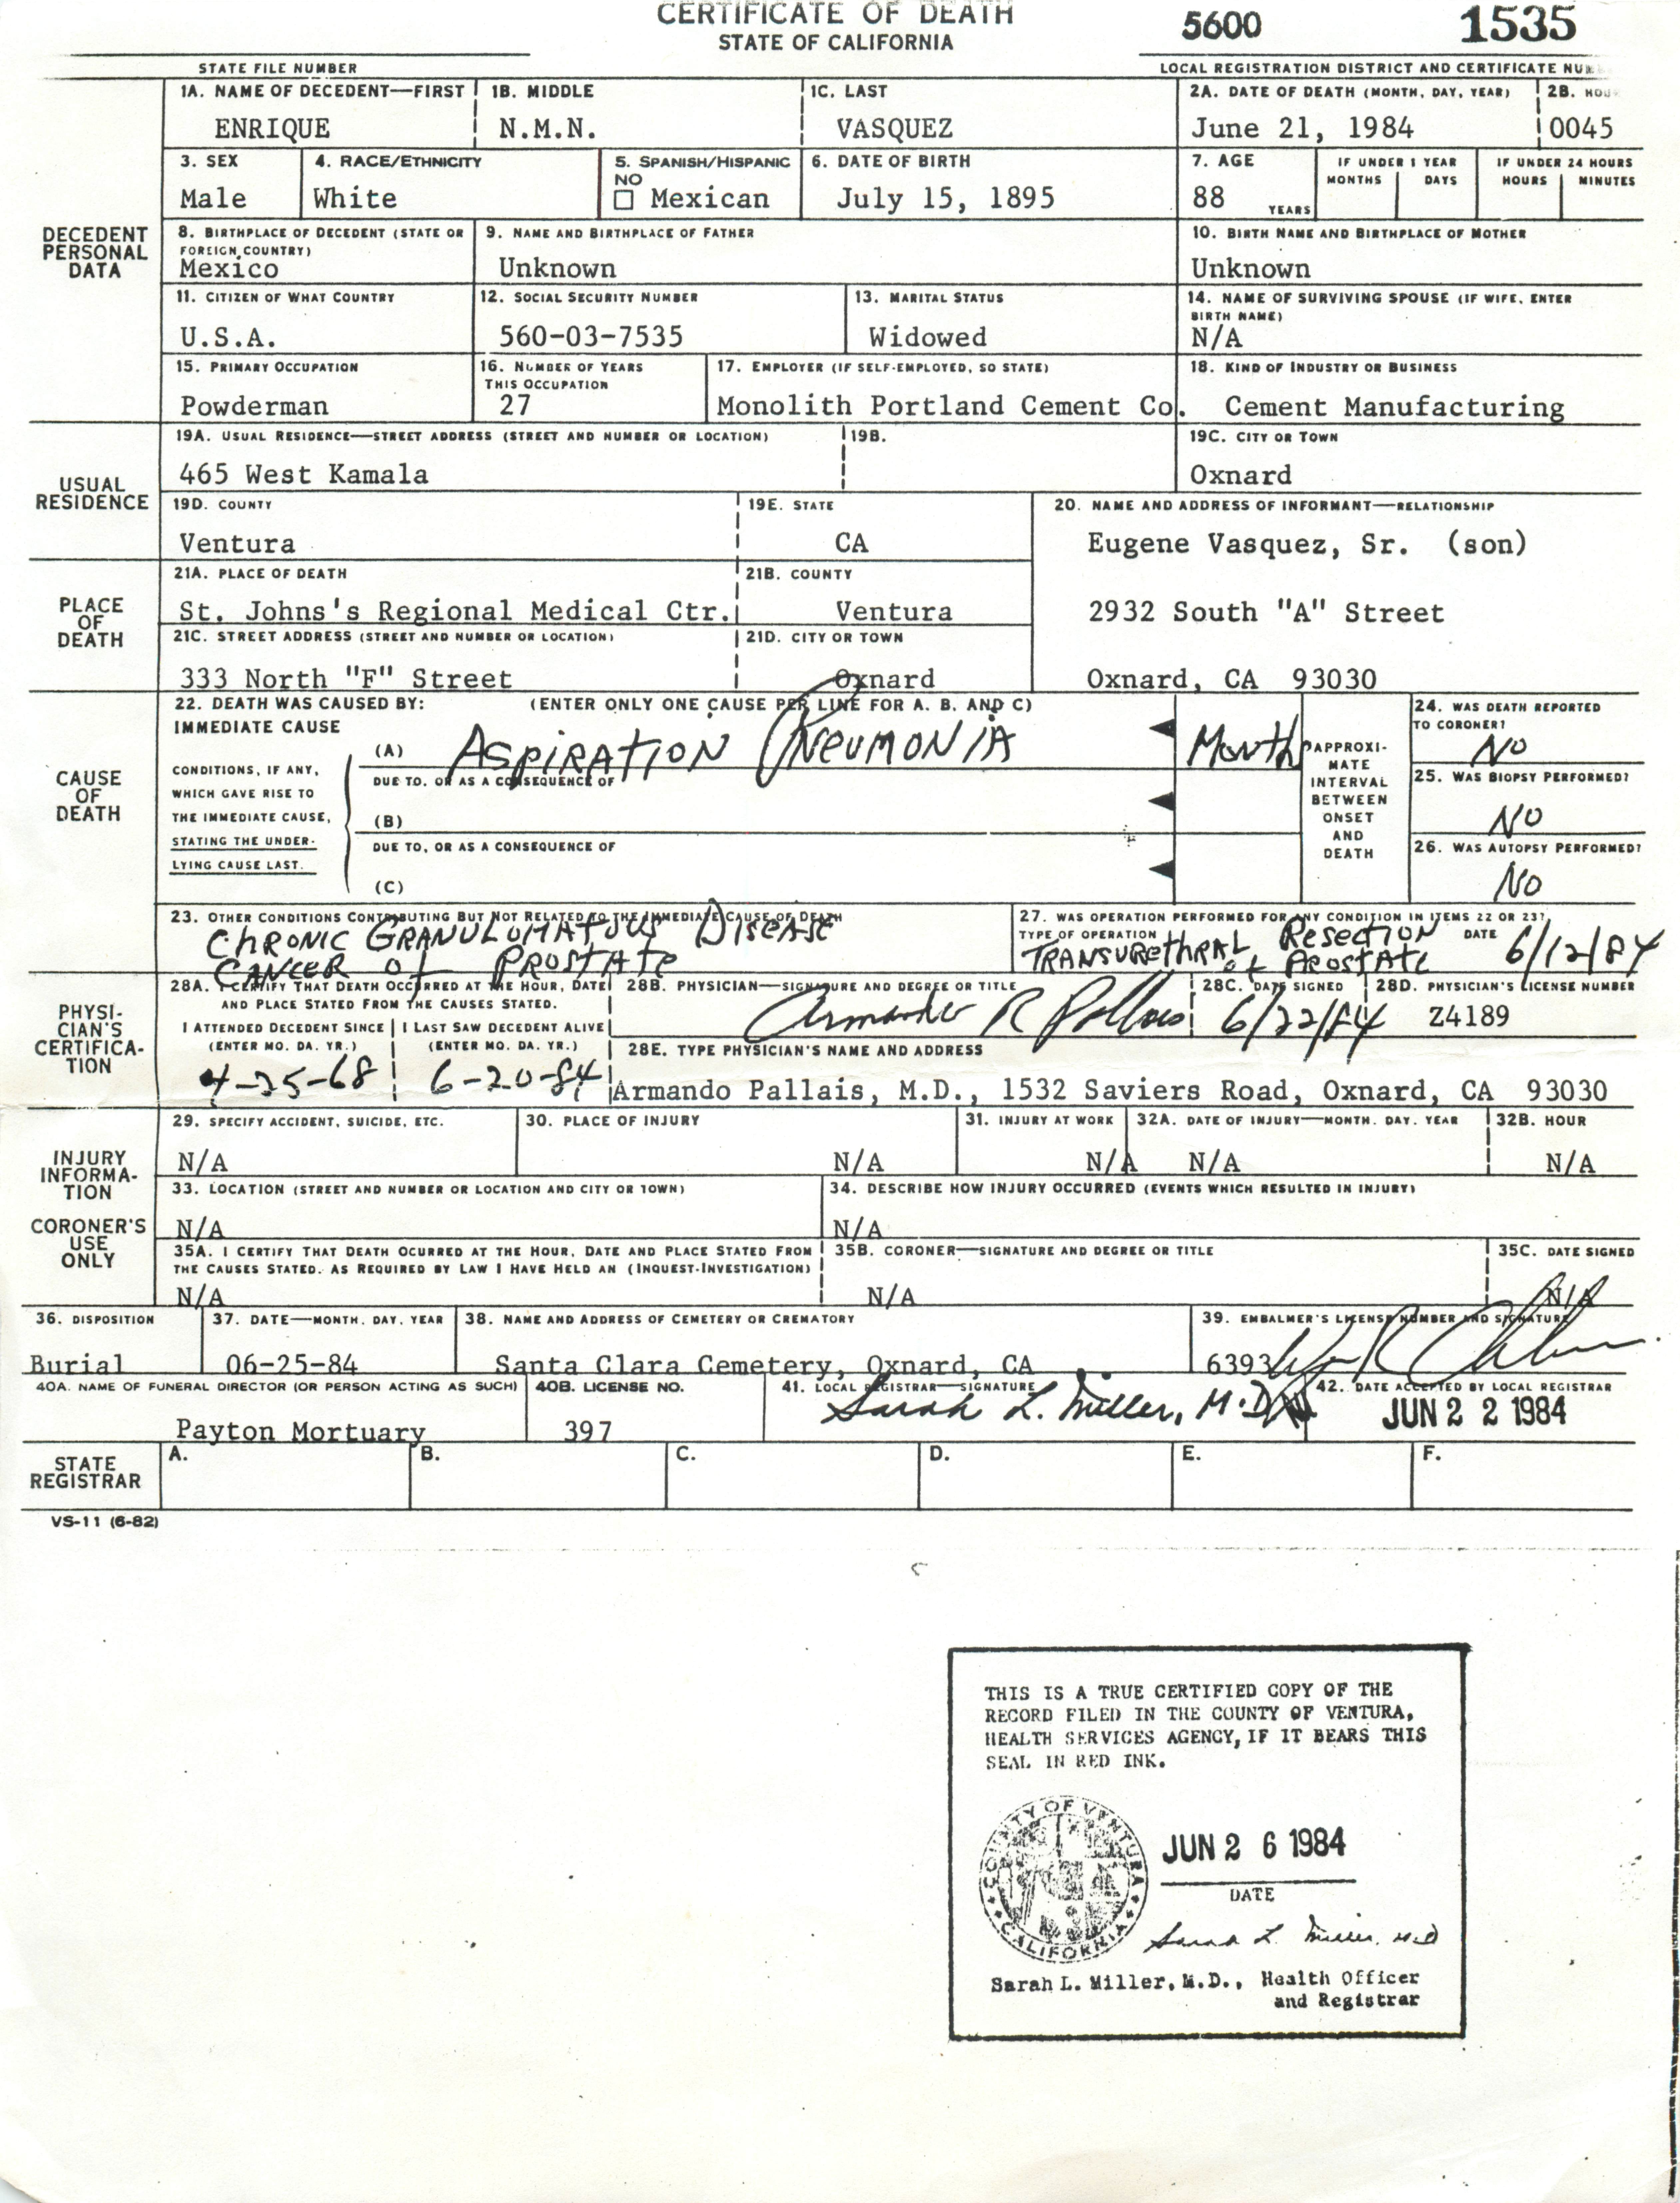 CERTIFICATE OF DEATH
STATE OF CALIFORNIA
5600 1535
STATE FILE NUMBER
LOCAL REGISTRATION DISTRICT AND CERTIFICATE
1A. NAME OF DECEDENT—FIRST 1B. MIDDLE 1C. LAST 2A. DATE OF DEATH (MONTH, DAY, YEAR) 2B.
ENRIQUE N.M.N. VASQUEZ June 21, 1984 0045
3. SEX 4. RACE/ETHNICITY 5. SPANISH/HISPANIC 6. DATE OF BIRTH 7. AGE IF UNDER 1 YEAR IF UNDER 24 HOURS
NO MONTHS DAYS HOURS MINUTES
Male White Mexican July 15, 1895 88 YEARS
DECEDENT PERSONAL DATA
8. BIRTHPLACE OF DECEDENT (STATE OR FOREIGN COUNTRY) 9. NAME AND BIRTHPLACE OF FATHER 10. BIRTH NAME AND BIRTHPLACE OF MOTHER
Mexico Unknown Unknown
11. CITIZEN OF WHAT COUNTRY 12. SOCIAL SECURITY NUMBER 13. MARITAL STATUS 14. NAME OF SURVIVING SPOUSE (IF WIFE, ENTER BIRTH NAME)
U.S.A. 560-03-7535 Widowed N/A
15. PRIMARY OCCUPATION 16. NUMBER OF YEARS THIS OCCUPATION 17. EMPLOYER (IF SELF-EMPLOYED, SO STATE) 18. KIND OF INDUSTRY OR BUSINESS
Powderman 27 Monolith Portland Cement Co. Cement Manufacturing
USUAL RESIDENCE
19A. USUAL RESIDENCE—STREET ADDRESS (STREET AND NUMBER OR LOCATION) 19B. 19C. CITY OR TOWN
465 West Kamala Oxnard
19D. COUNTY 19E. STATE 20. NAME AND ADDRESS OF INFORMANT—RELATIONSHIP
Ventura CA Eugene Vasquez, Sr. (son)
PLACE OF DEATH
21A. PLACE OF DEATH 21B. COUNTY
St. Johns's Regional Medical Ctr. Ventura 2932 South "A" Street
21C. STREET ADDRESS (STREET AND NUMBER OR LOCATION) 21D. CITY OR TOWN
333 North "F" Street Oxnard Oxnard, CA 93030
CAUSE OF DEATH
22. DEATH WAS CAUSED BY: (ENTER ONLY ONE CAUSE PER LINE FOR A. B. AND C)
IMMEDIATE CAUSE
(A) ASPIRATION PNEUMONIA Month
CONDITIONS, IF ANY, WHICH GAVE RISE TO THE IMMEDIATE CAUSE, STATING THE UNDERLYING CAUSE LAST.
DUE TO, OR AS A CONSEQUENCE OF
(B)
DUE TO, OR AS A CONSEQUENCE OF
(C)
APPROXIMATE INTERVAL BETWEEN ONSET AND DEATH
24. WAS DEATH REPORTED TO CORONER?
NO
25. WAS BIOPSY PERFORMED?
NO
26. WAS AUTOPSY PERFORMED?
NO
23. OTHER CONDITIONS CONTRIBUTING BUT NOT RELATED TO THE IMMEDIATE CAUSE OF DEATH
CHRONIC GRANULOMATOUS DISEASE
CANCER of PROSTATE
27. WAS OPERATION PERFORMED FOR ANY CONDITION IN ITEMS 22 OR 23?
TYPE OF OPERATION DATE
TRANSURETHRAL Resection of PROSTATE 6/12/84
PHYSICIAN'S CERTIFICATION
28A. I CERTIFY THAT DEATH OCCURRED AT THE HOUR, DATE AND PLACE STATED FROM THE CAUSES STATED.
28B. PHYSICIAN—SIGNATURE AND DEGREE OR TITLE 28C. DATE SIGNED 28D. PHYSICIAN'S LICENSE NUMBER
Armando R Pallais 6/22/84 Z4189
I ATTENDED DECEDENT SINCE (ENTER MO. DA. YR.) I LAST SAW DECEDENT ALIVE (ENTER MO. DA. YR.) 28E. TYPE PHYSICIAN'S NAME AND ADDRESS
4-25-68 6-20-84 Armando Pallais, M.D., 1532 Saviers Road, Oxnard, CA 93030
INJURY INFORMATION
CORONER'S USE ONLY
29. SPECIFY ACCIDENT, SUICIDE, ETC. 30. PLACE OF INJURY 31. INJURY AT WORK 32A. DATE OF INJURY—MONTH. DAY. YEAR 32B. HOUR
N/A N/A N/A N/A N/A
33. LOCATION (STREET AND NUMBER OR LOCATION AND CITY OR TOWN) 34. DESCRIBE HOW INJURY OCCURRED (EVENTS WHICH RESULTED IN INJURY)
N/A N/A
35A. I CERTIFY THAT DEATH OCURRED AT THE HOUR, DATE AND PLACE STATED FROM THE CAUSES STATED. AS REQUIRED BY LAW I HAVE HELD AN (INQUEST-INVESTIGATION) 35B. CORONER—SIGNATURE AND DEGREE OR TITLE 35C. DATE SIGNED
N/A N/A N/A
36. DISPOSITION 37. DATE—MONTH. DAY. YEAR 38. NAME AND ADDRESS OF CEMETERY OR CREMATORY 39. EMBALMER'S LICENSE NUMBER AND SIGNATURE
Burial 06-25-84 Santa Clara Cemetery, Oxnard, CA 6393
40A. NAME OF FUNERAL DIRECTOR (OR PERSON ACTING AS SUCH) 40B. LICENSE NO. 41. LOCAL REGISTRAR—SIGNATURE 42. DATE ACCEPTED BY LOCAL REGISTRAR
Payton Mortuary 397 Sarah L. Miller, M.D. JUN 22 1984
STATE REGISTRAR A. B. C. D. E. F.
VS-11 (6-82)
THIS IS A TRUE CERTIFIED COPY OF THE
RECORD FILED IN THE COUNTY OF VENTURA,
HEALTH SERVICES AGENCY, IF IT BEARS THIS
SEAL IN RED INK.
COUNTY OF VENTURA CALIFORNIA
JUN 26 1984
DATE
Sarah L. Miller, M.D
Sarah L. Miller, M.D., Health Officer
and Registrar